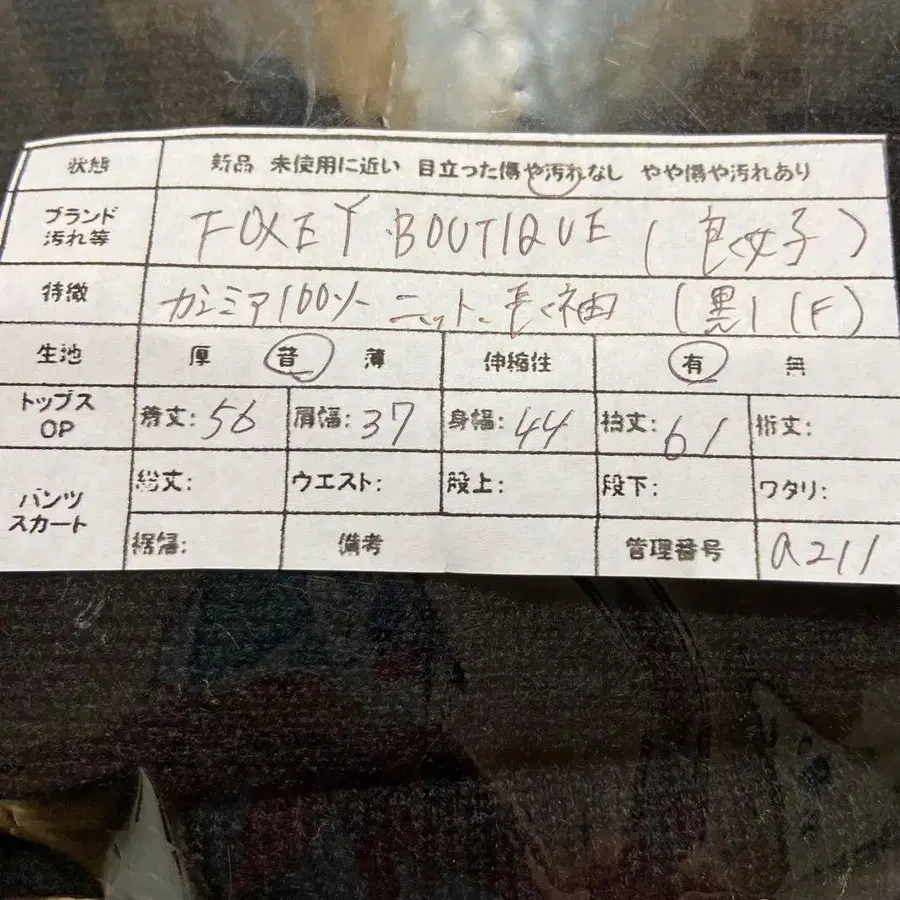 状態 新品 未使用に近い 目立った傷や汚れなし やや傷や汚れあり
ブランド
汚れ等 FOXEY BOUTIQUE (良女子)
特徴 カシミア100% ニット、長袖 (黒) (F)
生地 厚 普 薄 伸縮性 有 無
トップス
OP 着丈: 56 肩幅: 37 身幅: 44 袖丈: 61 裄丈:
パンツ
スカート 総丈: ウエスト: 股上: 股下: ワタリ:
裾幅: 備考 管理番号 a211